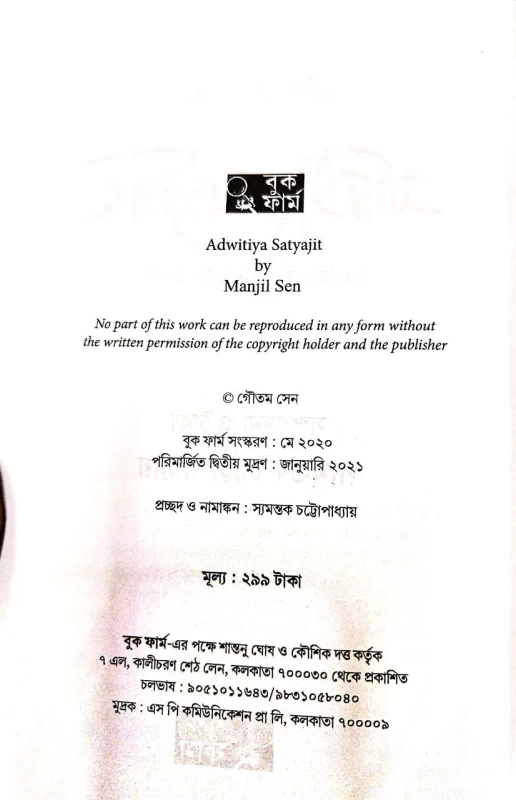 বুক
ফার্ম
Adwitiya Satyajit
by
Manjil Sen
No part of this work can be reproduced in any form without
the written permission of the copyright holder and the publisher
© গৌতম সেন
বুক ফার্ম সংস্করণ : মে ২০২০
পরিমার্জিত দ্বিতীয় মুদ্রণ : জানুয়ারি ২০২১
প্রচ্ছদ ও নামাঙ্কন : স্যমন্তক চট্টোপাধ্যায়
মূল্য : ২৯৯ টাকা
বুক ফার্ম-এর পক্ষে শান্তনু ঘোষ ও কৌশিক দত্ত কর্তৃক
৭ এল, কালীচরণ শেঠ লেন, কলকাতা ৭০০০৩০ থেকে প্রকাশিত
চলভাষ : ৯০৫১০১১৬৪৩/৯৮৩১০৫৮০৪০
মুদ্রক : এস পি কমিউনিকেশন প্রা লি, কলকাতা ৭০০০০৯